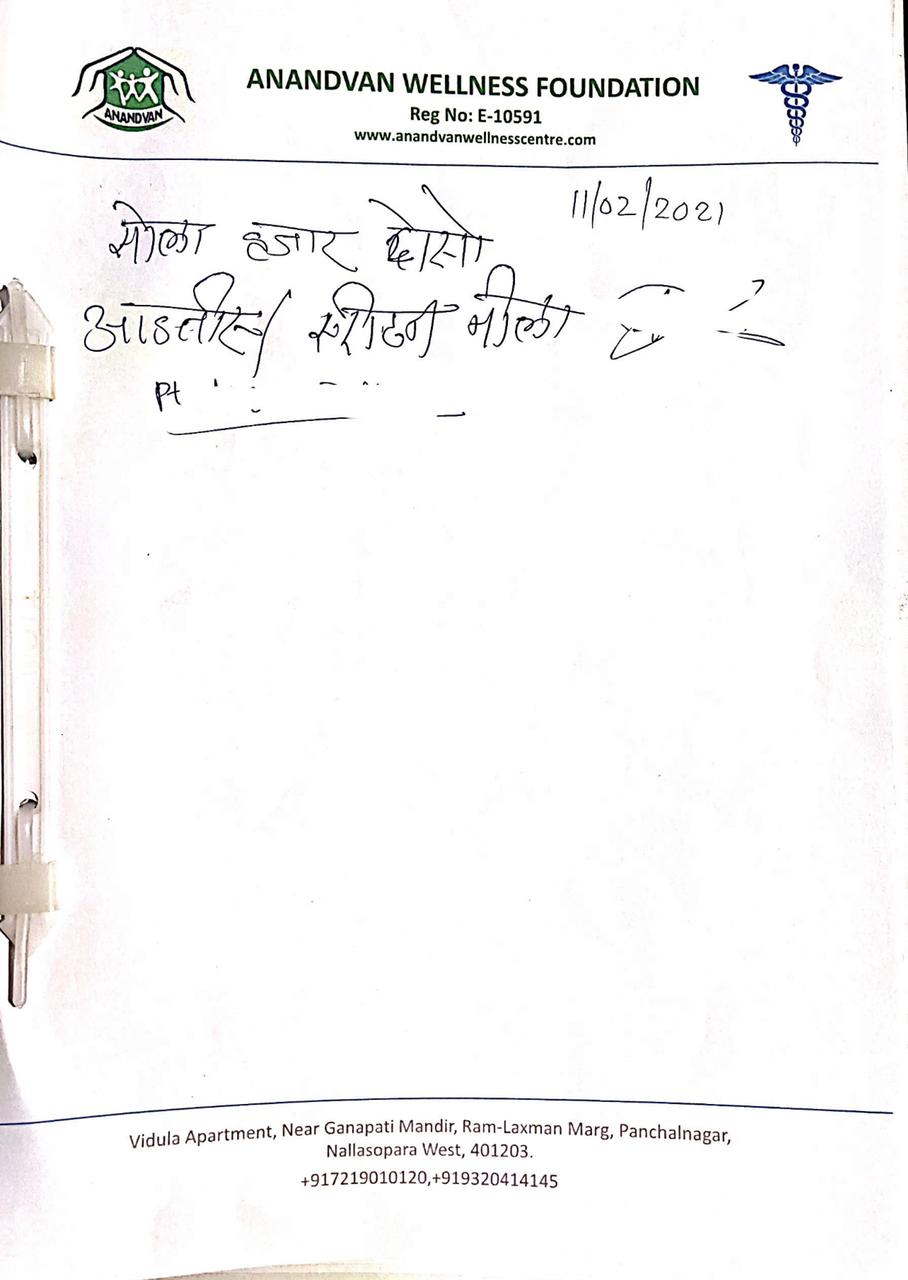 ANANDVAN
ANANDVAN WELLNESS FOUNDATION
Reg No: E-10591
www.anandvanwellnesscentre.com
11/02/2021
सोला हजार दोसो
आडतीस/ मीला
Pt
Vidula Apartment, Near Ganapati Mandir, Ram-Laxman Marg, Panchalnagar,
Nallasopara West, 401203.
+917219010120,+919320414145